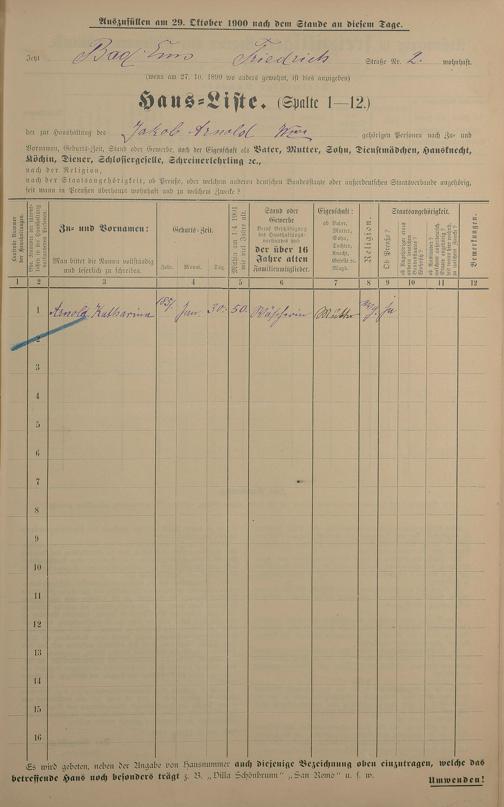 Auszufüllen am 29. Oktober 1900 nach dem Stande an diesem Tage.
Jetzt Bad Ems Friedrich Straße Nr. 2. wohnhaft.
(wenn am 27. 10. 1899 wo anders gewohnt, ist dies anzugeben)
Haus-Liste. (Spalte 1—12.)
der zur Haushaltung des Jakob Arnold Wwe gehörigen Personen nach Zu- und
Vornamen, Geburts-Zeit, Stand oder Gewerbe, auch der Eigenschaft als Vater, Mutter, Sohn, Dienstmädchen, Hausknecht,
Köchin, Diener, Schlossergeselle, Schreinerlehrling ec.,
nach der Religion,
nach der Staatsangehörigkeit, ob Preuße, oder welchem anderen deutschen Bundesstaate oder außerdeutschen Staatsverbande angehörig,
seit wann in Preußen überhaupt wohnhaft und zu welchem Zwecke?
Zu- und Vornamen:
Man bittet die Namen vollständig
und leserlich zu schreiben.
Geburts-Zeit.
Jahr. Monat. Tag.
Mithin am 1.4. 1901
wie viel Jahre alt.
Stand oder
Gewerbe
der über 16
Jahre alten
Familienmitglieder.
Eigenschaft:
ob Vater,
Mutter,
Sohn,
Tochter,
Knecht,
Geselle
Magd.
Religion.
Staatsangehörigkeit.
Ob Preuße?
Bemerkungen.
1 2 3 4 5 6 7 8 9 10 11 12
1 Arnold Katharina Jan. 30. 50. Wäscherin Mutter ja
2
3
4
5
6
7
8
9
10
11
12
13
14
15
16
Es wird gebeten, neben der Angabe von Hausnummer auch diejenige Bezeichnung oben einzutragen, welche das
betreffende Haus noch besonders trägt z. B. „Villa Schönbrunn" „San Remo" u. s. w.
Umwenden!